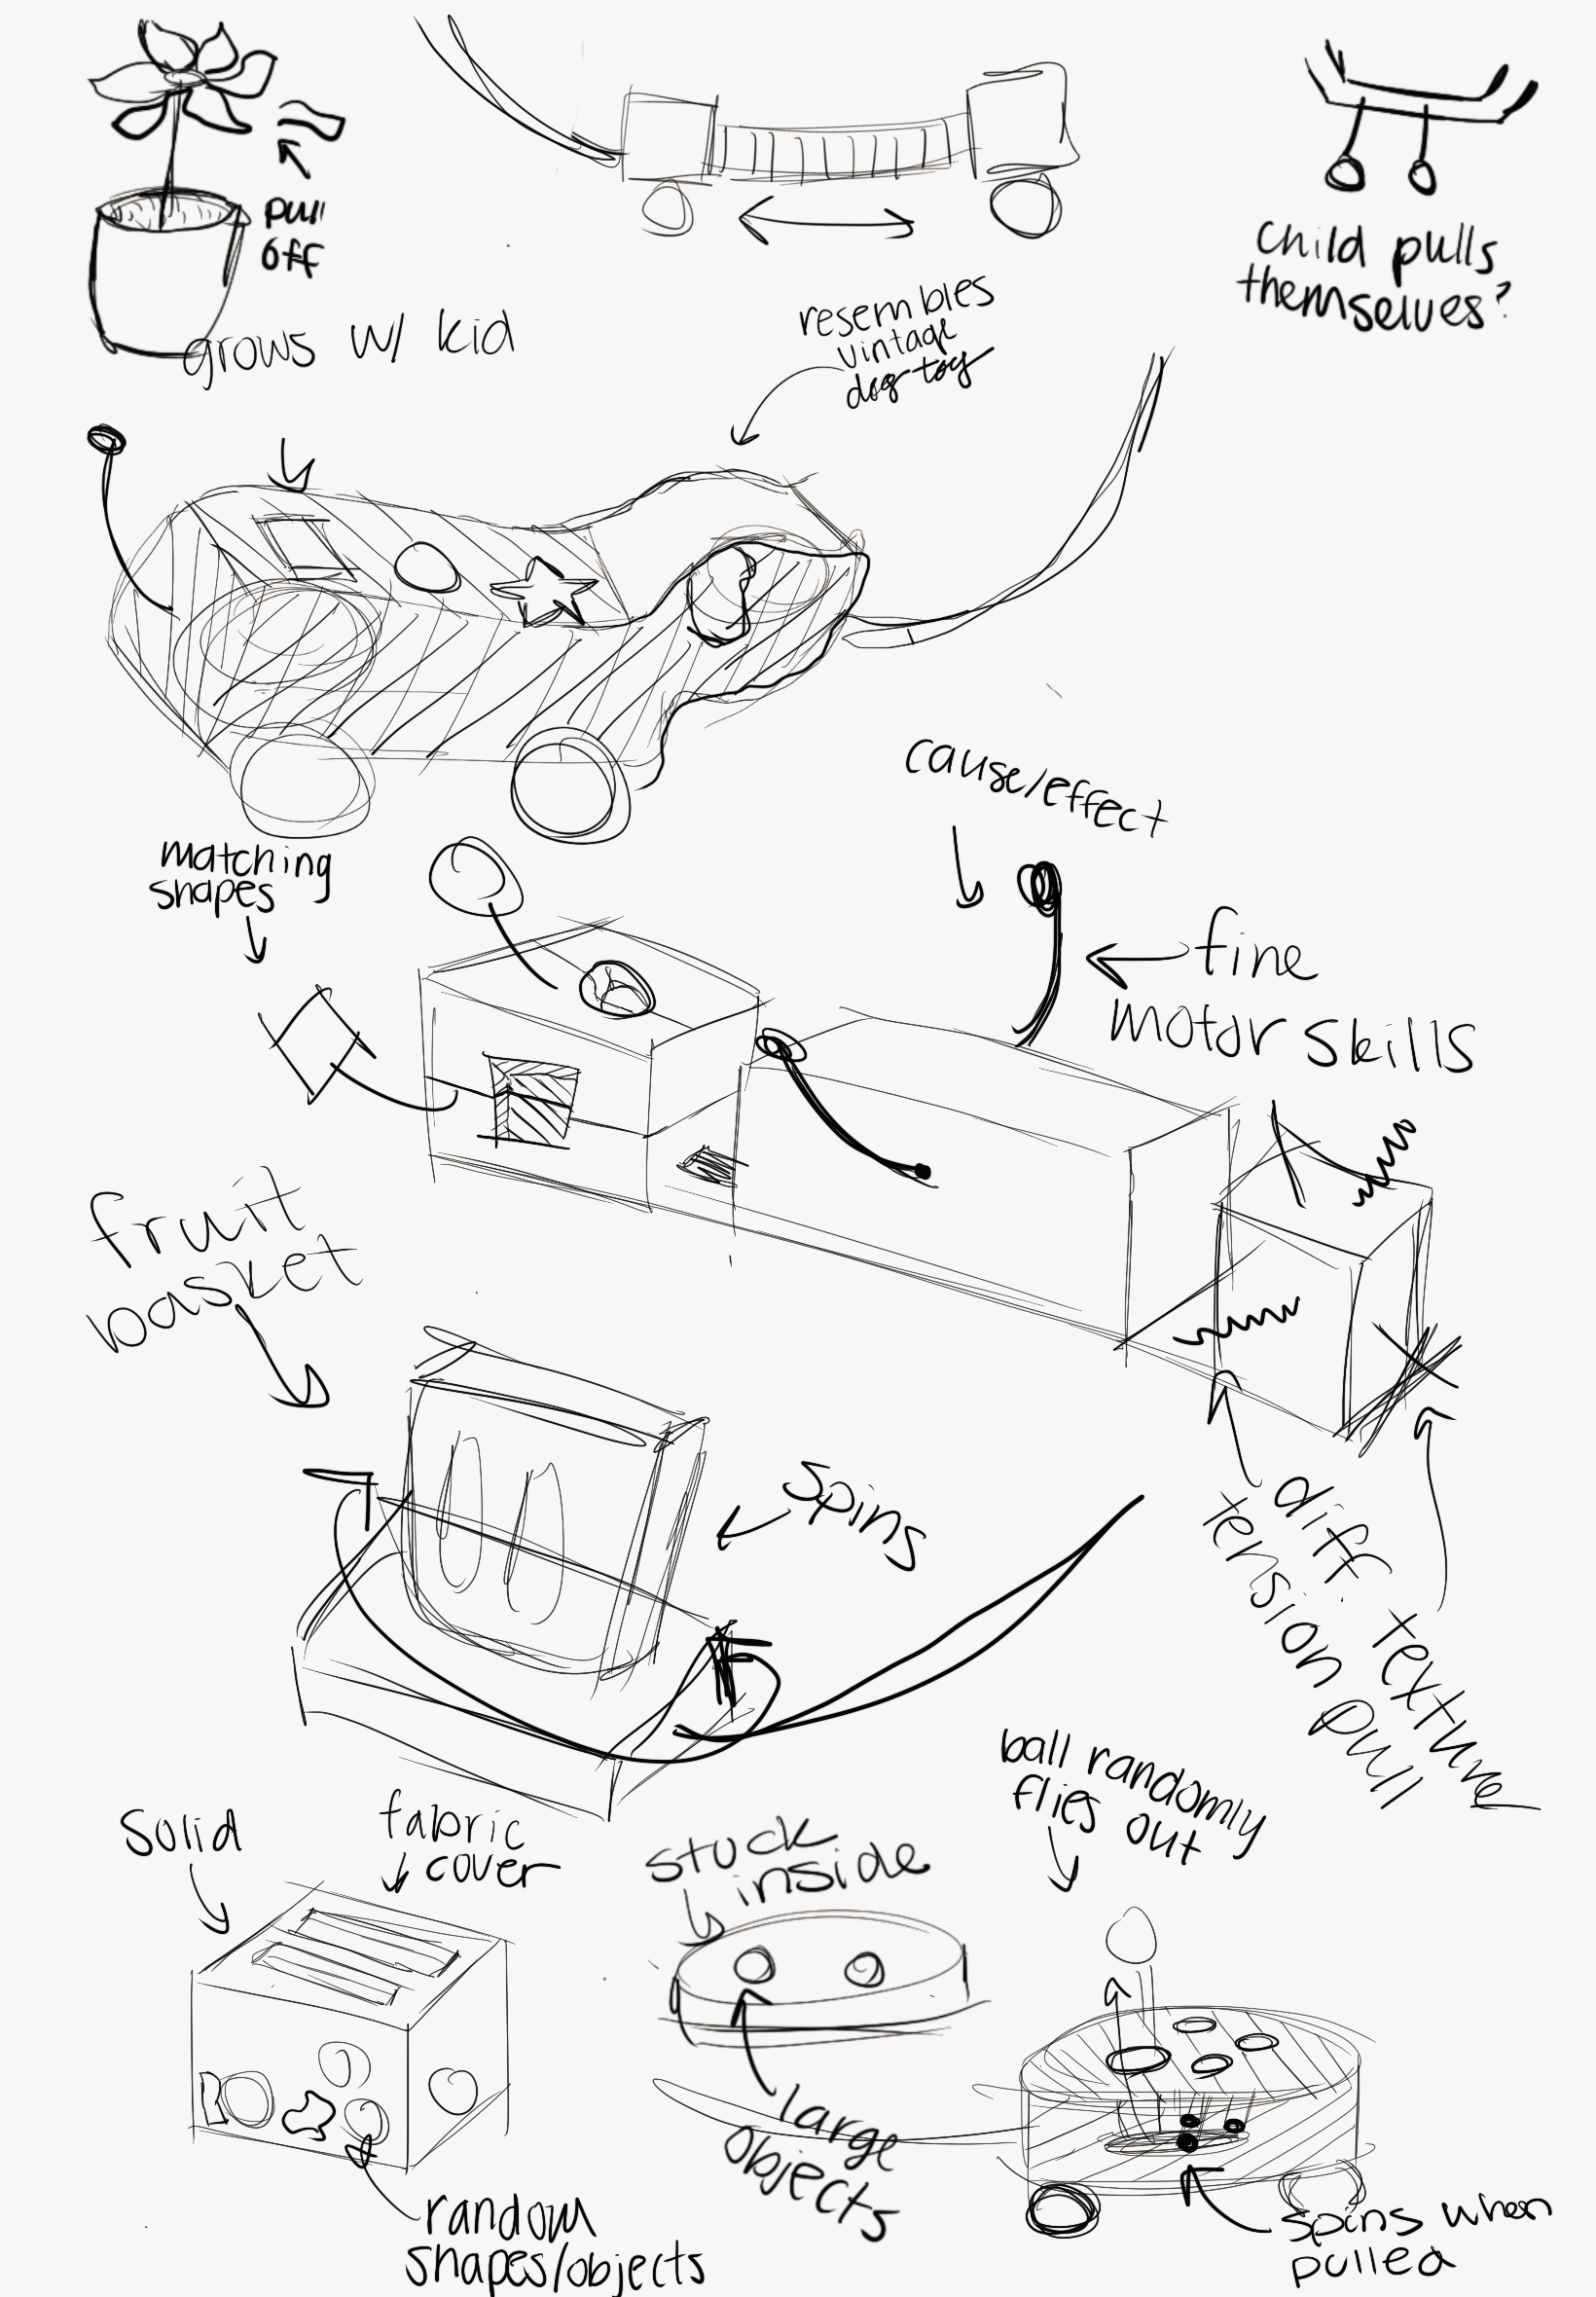 pull
off
grows w/ kid
child pulls
themselves?
resembles
vintage
dog toy
cause/effect
matching
shapes
fine
motor skills
fruit
basket
spins
diff texture
tension pull
ball randomly
flies out
solid
fabric
cover
stuck
inside
large
objects
random
shapes/objects
spins when
pulled